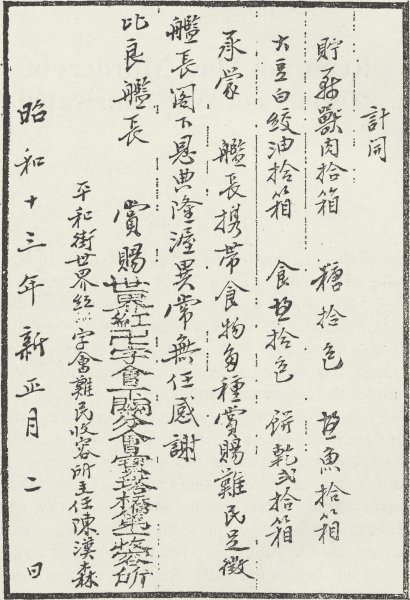 計開
貯藏獸肉拾箱　糖拾包　塩魚拾箱
大豆白絞油拾箱　食塩拾包　餅乾弍拾箱
承蒙　艦長携帶食物多種賞賜難民足徵
艦長閣下恩典隆渥異常無任感謝
比良艦長　賞賜世界紅卍字會下關分會寶塔橋收容所
平和街世界紅卍字會難民收容所主任陳漢森
昭和十三年新正月二日